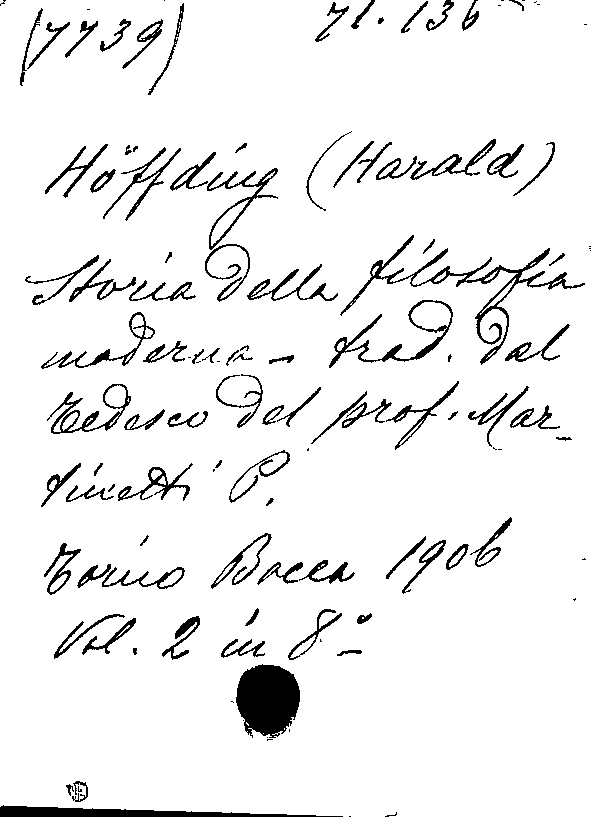 (7739) 71.136
Höffding (Harald)
Storia della filosofia
moderna - trad. dal
tedesco del prof. Mar-
tinetti P.
Torino Bocca 1906
Vol. 2 in 8° -